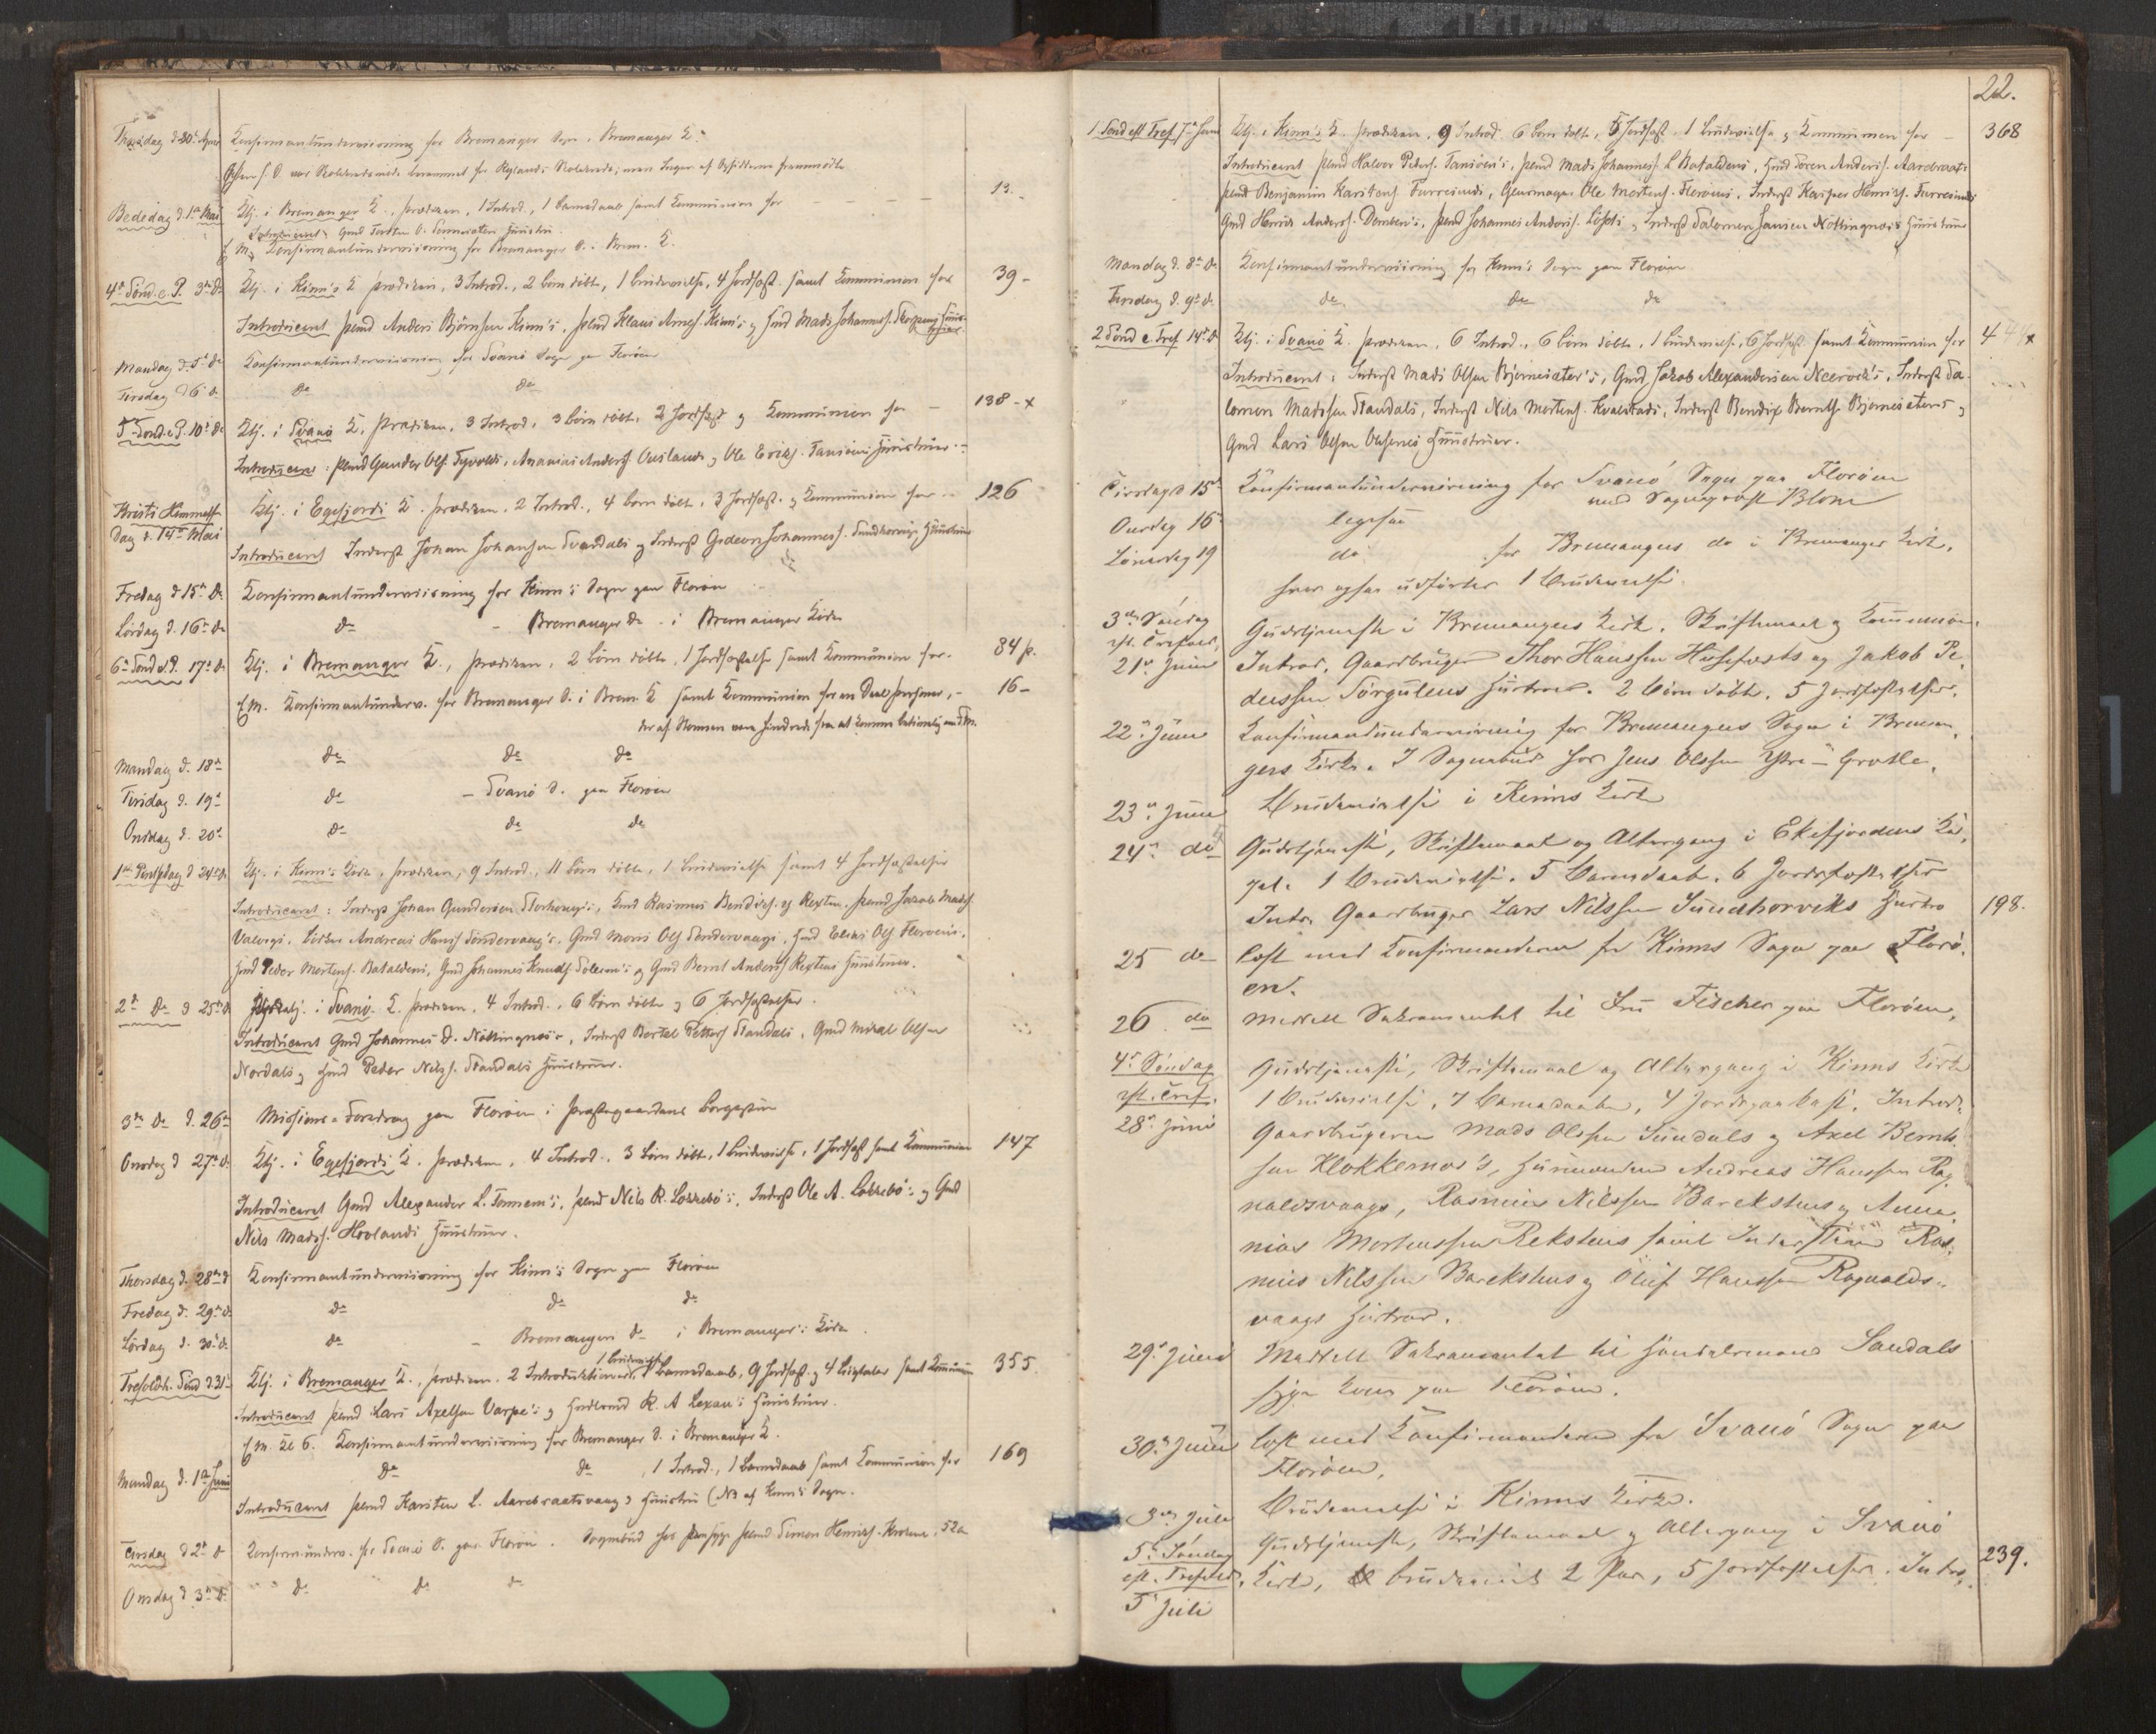 Thorsdag d. 30te April Konfirmantundervisning for Bremanger Sogn i Bremanger K.
Bededag d. 1ste Mai Gtj. i Bremanger K., prædiken, 1 Introd., 1 Barnedaab samt Kommunion for 13.
Introduceret Gmd
E. M. Konfirmantundervisning for Bremanger S. i Brem. K.
4de Sønd. e. P. 3die do Gtj. i Kinn's K. prædiken, 3 Introd., 2 børn døbte, 1 brudevielse, 4 Jordfæst. samt Kommunion for 39 -
Introduceret plmd Anders Bjørnsen Kinn's, plmd Klaus Arnes. Kinn's og Hmd Mads Johanness. Skorpens Hustruer
Mandag d. 5te do Konfirmantundervisning for Svanø Sogn paa Florøen
Tirsdag d 6te do do
5te Sønd. e. P. 10de do Gtj. i Svanø K. Prædiken, 3 Introd. 3 børn døbt, 2 Jordfæst og Kommunion for - 138 - x
Introduceret: plmd Gunder Ols. , Ananias Anders. Ausland og Ole Eriks. Hustruer.
Kristi Himmelf. Gtj. i Egefjords K. prædiken. 2 Introd., 4 børn døbt, 3 Jordfæst. og Kommunion for 126
dag d. 14de Mai
Introduceret Inderst Johan Johansen Svardals og Inderst Gideon Johanness. Sundhorvigs Hustruer
Fredag d 15de do Konfirmantundervisning for Kinn's Sogn paa Florøen
Lørdag d. 16de do do - Bremanger do i Bremanger Kirke
6te Sønd e P. 17de do Gtj. i Bremanger K., prædiken, 2 børn døbt, 1 Jordfæstelse samt Kommunion for 84 p.
E.M. Konfirmantunderv. for Bremanger S. i Brem. K samt Kommunion for en Deel personer, - 16 -
der af Stormen vare hindrede fra at komme betimelig om Fm.
Mandag d. 18de do do do
Tirsdag d. 19de do - Svanø S. paa Florøen
Onsdag d. 20de do do do
1ste Pintsedag d 24de do Gtj. i Kinn's Kirke, prædiken, 9 Introd., 11 børn døbte, 1 brudevielse samt 4 Jordfæstelser
Introduceret: Inderst Johan Gundersen Storhougs, Hmd Rasmus Bendixs. Rexten, plmd Jacob Mads.
Valvigs, Andreas Hans. Søndervaag's, Gmd Mons Ols Søndervaags, Hmd Elias Ols Florøens,
Hmd Peder Mortens. Bataldens, Gmd Johannes Knuds. Solem's og Gmd Bernt Anders. Rextens Hustruer.
2den do d 25de do Gtj. i Svanø K. prædiken, 4 Introd., 6 børn døbte og 6 Jordfæstelser.
Introduceret Gmd Johannes D. Nøttingnes's, Inderst Bertel Petters Standals, Gmd Mikal Olsen
Nordals og Hmd Peder Nils. Standals Hustruer.
3die do d. 26de Missions-Foredrag paa Florøen i præstegaardens borgestue
Onsdag d 27de do Gtj. i Egefjords K. prædiken, 4 Introd. 3 børn døbt, 1 brudevielse, 1 Jordfæst samt Kommunion 147
Introduceret Gmd Alexander L. Tonnem's, plmd Nils R. Løkkebø's, Inderst Ole A. Løkkebø's og Gmd
Nils Mads. Hovlands Hustruer.
Thorsdag d. 28de do Konfirmantundervisning for Kinn's Sogn paa Florøen
Fredag d. 29de do do do do
Lørdag d. 30te do do - Bremanger do i Bremanger's Kirke.
1 brudevielse
Trefoldh. Sønd d 31te Gtj. i Bremanger K., prædiken, 2 Introduktioner, Barnedaab, 9 Jordfæst. og 4 Liigtaler samt Kommunion 355.
Introduceret plmd Lars Axelsen Varpe's og R. A Lexau's Hustruer.
E.M. Kl 6. Konfirmantundervisning for Bremanger S. i Bremanger K.
Mandag d. 1ste Juni do do, 1 Introd., 1 Barnedaab samt Kommunion for 169
Introduceret plmd Karsten L. Aarebraatsvaag's Hustru (NB af Kinn's Sogn.
Tirsdag d 2den do Konfirm.underv. for Svanø S. paa Florøen. Sognebud hos plmd Simon Henriks. , 52
Onsdag d 3die do do do do
22.
1 Sønd eft Tref. 7de Juni Gtj. i Kinn's K. prædiken, 9 Introd. 6 børn døbte, 5 Jordfæst. 1 brudevielse og Kommunion for - 368
Introduceret plmd Halvor Peders. Tansøen's, plmd Mads Johanness. L Bataldens, Hmd Søren Anders. Aarebraats
plmd Benjamin Karstens Furresunds, Ole Mortens. Florøens, Inderst Kasper Henriks. Furresunds
Gmd Henrik Anders. Domben's, plmd Johannes Anders. og Inderst Salomon Jansen Nøttingnæs's Hustruer
Mandag d. 8de do Konfirmantundervisning for Kinn's Sogn paa Florøen
Tirsdag d. 9de do. do do do
2 Sønd e. Tref 14de do Gtj. i Svanø K. prædiken, 6 Introd., 6 børn døbte, 1 brudevielse, 6 Jordfæst samt Kommunion for 444 x
Introduceret: Inderst Mads Olsen Bjørnesæter's, Gmd Jakob Alexandersen Neerviks, Inderst Sa-
lomon Madssen Standals, Inderst Nils Mortens. Kvalstads, Inderst Bendix Berntsen Bjørnesæters og
Gmd Lars Olsen Hustruer.
Tirsdag d 15de Konfirmandundervisning for Svanø Sogn paa Florøen
Onsdag 16de ligesaa med Sogneprest Blom
Lørdag 19 do for Bremangers do i Bremanger Kirke,
hvor ogsaa udførtes 1 Brudevielse.
3die Søndag Gudstjeneste i Bremangers Kirke. Skriftemaal og Kommunion,
eft. Trefold. Introd. Gaardbruger Thor Hanssen Husefests og Jakob Pe-
21de Juni derssen Sørgulens Hustruer. 2 børn døbte. 5 Jordfæstelser.
22de Juni Konfirmandundervisning for Bremangers Sogn i Breman-
gers Kirke. I Sognebud hos Jens Olssen Ytre-Grotle.
23de Juni Brudevielse i Kinns Kirke
24de do Gudstjeneste, Skriftemaal og Altergang i Ekefjordens Ka-
pel. 1 Brudevielse. 5 Barnedaab. 6 Jordfæstelser
Intr. Gaardbruger Lars Nilssen Sundhorviks Hustru 198.
25 do Læst med Konfirmanderne fra Kinns Sogn paa Florø-
en.
26 do meddelt Sakramentet til Fru Fischer paa Florøen.
4de Søndag Gudstjeneste, Skriftemaal og Altergang i Kinns Kirke
eft. Tref. 1 Brudevielse, 7 Barnedaabe, 4 Jordpaakast. Introd.
28de Juni Gaardbrugerne Mads Olssen Sundals og Axel Bernt-
sen Klokkernes's, Husmændene Andreas Hanssen Rag-
naldsvaags, Rasmus Nilssen Barekstens og Anna-
nias Mortenssen Rekstens samt Inderstene Ras-
mus Nilssen Barekstens og Oluf Hanssen Ragnalds-
vaags Hustruer.
29de Juni Meddelt Sakramentet til Handelsmand Sandals
syge Kone paa Florøen.
30te Juni læst med Konfirmanderne fra Svanø Sogn paa
Florøen.
3die Juli Brudevielse i Kinns Kirke.
5te Søndag Gudstjeneste, Skriftemaal og Altergang i Svanø
eft. Trefold. Kirke, brudeviet 2 Par, 5 Jordfæstelser. Intro- 239.
5 Juli